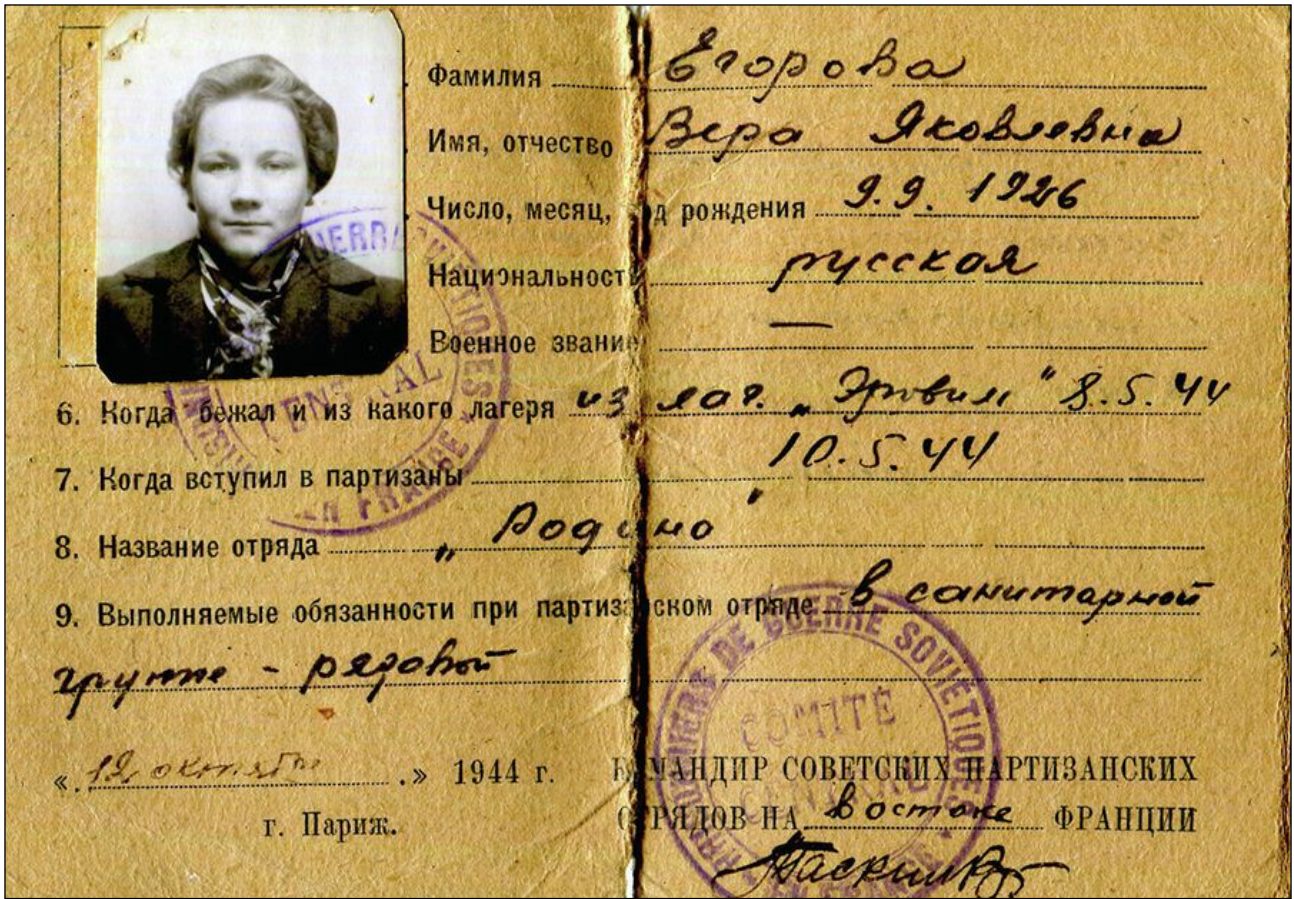 Фамилия Егорова
Имя, отчество Вера Яковлевна
Число, месяц, год рождения 9.9. 1926
Национальность русская
Военное звание —
6. Когда бежал и из какого лагеря из лаг. „Эрувиль" 8.5.44
7. Когда вступил в партизаны 10.5.44
8. Название отряда „Родина"
9. Выполняемые обязанности при партизанском отряде в санитарной
группе - рядовой
«12 октября.» 1944 г.
г. Париж.
КОМАНДИР СОВЕТСКИХ ПАРТИЗАНСКИХ
ОТРЯДОВ НА востоке ФРАНЦИИ
DE GUERRE SOVIÉTIQUES
COMITÉ
CENTRAL
EN FRANCE